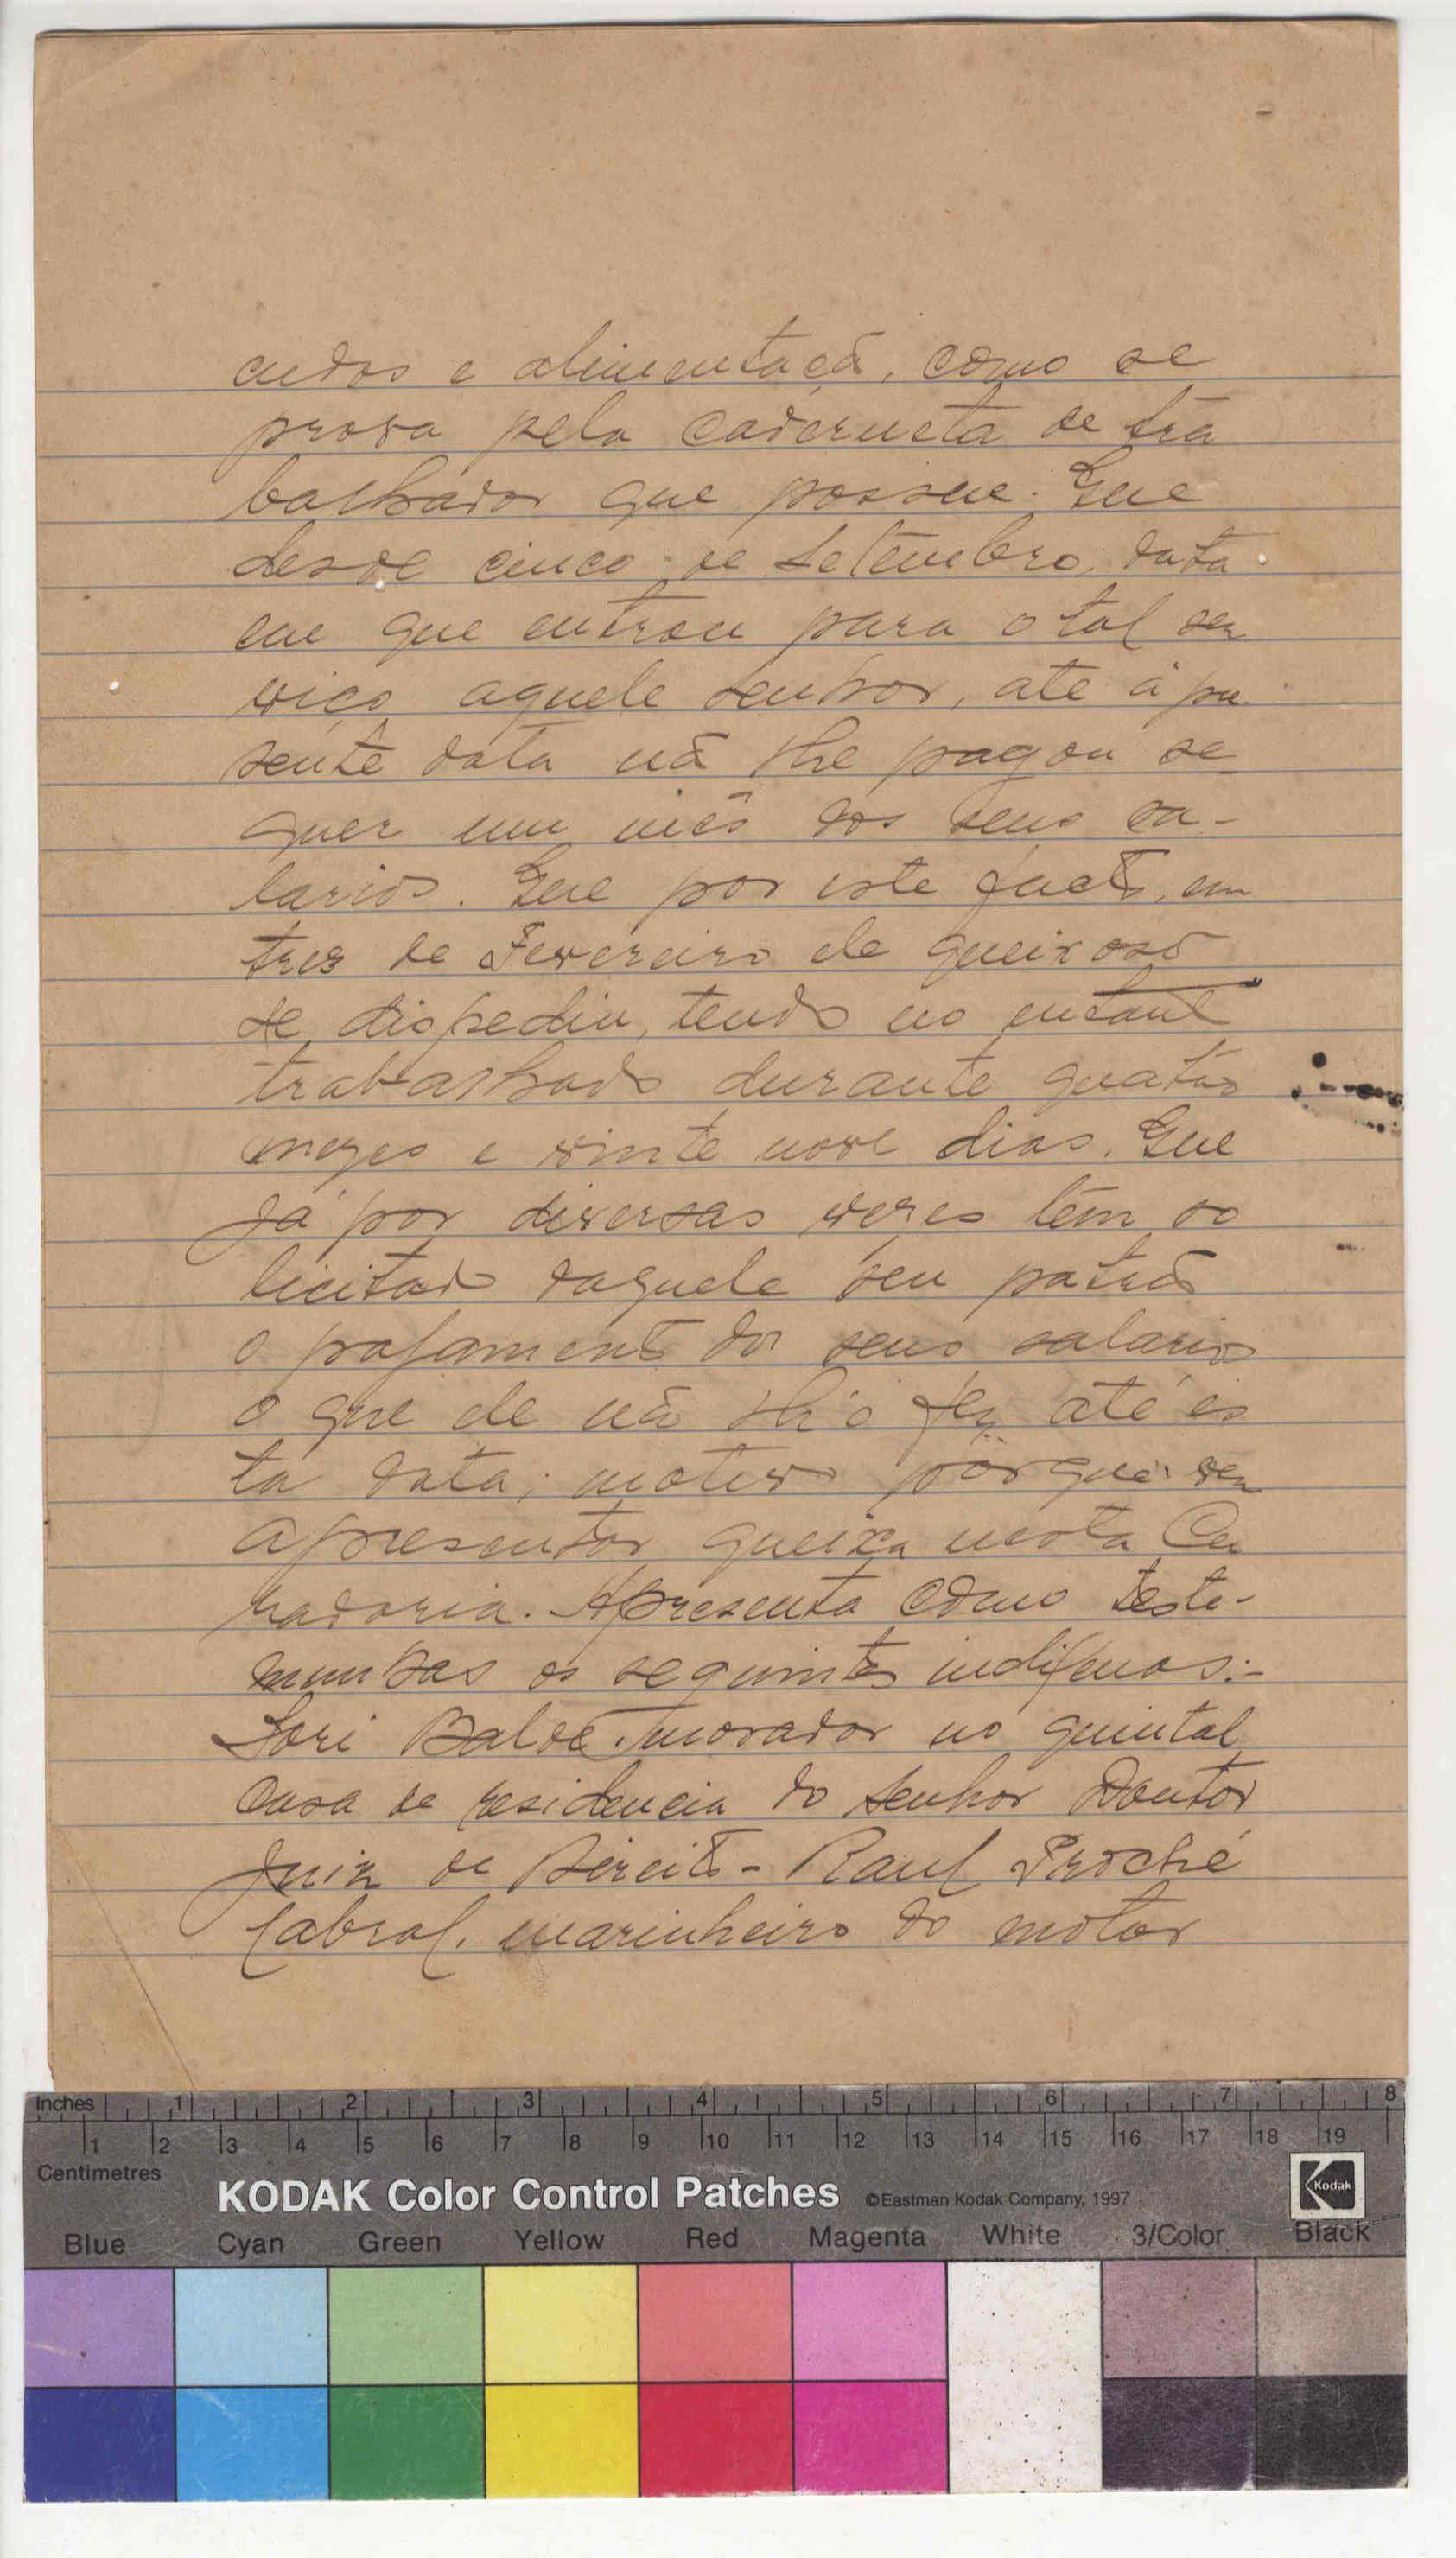 cudos e alimentação, como se
prova pela caderneta de tra
balhador que possue. Que
desde cinco de Setembro, data
em que entrou para o tal ser
viço aquele senhor, ate á pre
sente data não lhe pagou se
quer um mês dos seus sa-
larios. Que por este facto, em
tres de Fevereiro ele queixoso
se dispediu, tendo no entanto
trabalhado durante quatro
mezes e vinte nove dias. Que
já por diversas vezes tem so
licitado daquele seu patrão
o pagamento dos seus salarios
o que ele não lh'o fez até es
ta data; motivo porque vem
apresentar queixa nesta Cu
radoria. Apresenta como teste-
munhas os seguintes indigenas:-
Sori Baldé morador no quintal
casa de residencia do Senhor Doutor
Juiz de Direito - Raul
Cabral, marinheiro do motor
Inches 1 2 3 4 5 6 7 8
1 2 3 4 5 6 7 8 9 10 11 12 13 14 15 16 17 18 19
Centimetres
KODAK Color Control Patches ©Eastman Kodak Company, 1997 Kodak
Blue Cyan Green Yellow Red Magenta White 3/Color Black